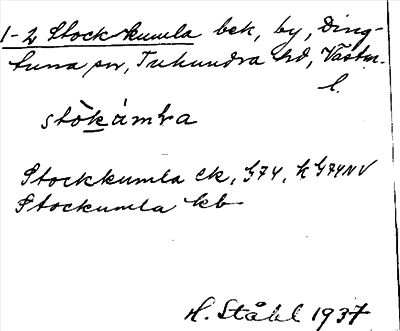 1-2 Stockkumla bek, by, Ding-
tuna sn, Tuhundra hd, Västm.
l.
stòkámra
Stockkumla ek, G74, h G74NV
Stockumla kb
H. Ståhl 1937